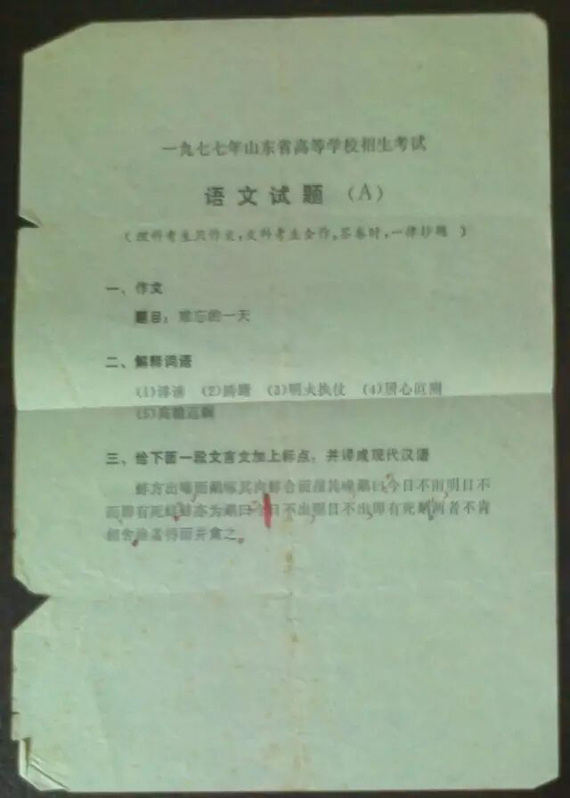 一九七七年山东省高等学校招生考试
语文试题（A）
（理科考生只作文，文科考生全作，答卷时，一律抄题）
一、作文
题目：难忘的一天
二、解释词语
(1)谆谆 (2)踌躇 (3)明火执仗 (4)居心叵测
(5)高瞻远瞩
三、给下面一段文言文加上标点，并译成现代汉语
蚌方出曝而鹬啄其肉蚌合而箝其喙鹬曰今日不雨明日不
雨即有死蚌蚌亦为鹬曰今日不出明日不出即有死鹬两者不肯
相舍渔者得而并禽之。